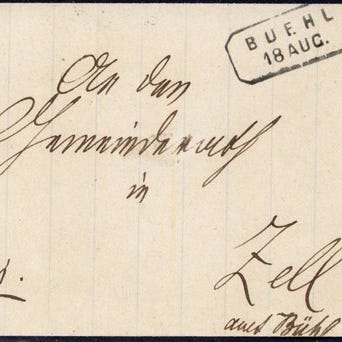 BUEHL
18 AUG.
An den
Gemeinderath
in
Zell
amt Bühl